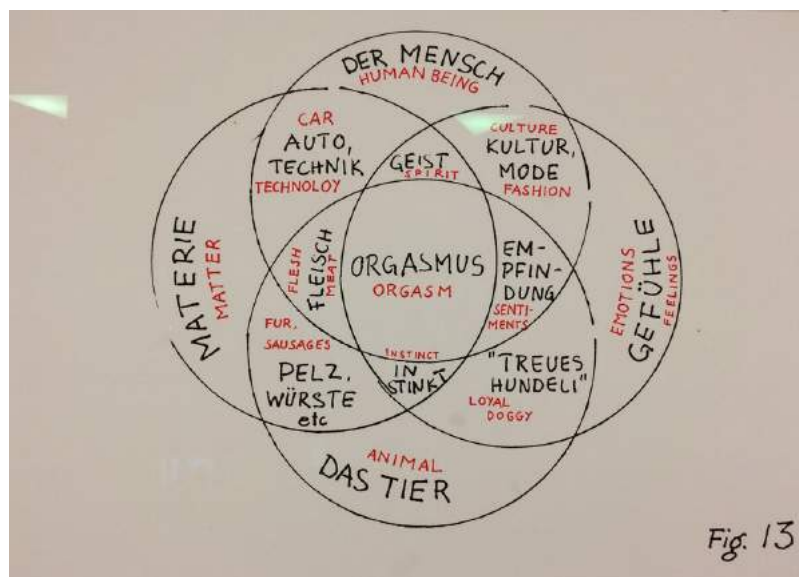 DER MENSCH
HUMAN BEING
CAR
AUTO,
TECHNIK
TECHNOLOY
GEIST
SPIRIT
CULTURE
KULTUR,
MODE
FASHION
MATERIE
MATTER
FLESH
FLEISCH
MEAT
ORGASMUS
ORGASM
EM-
PFIN-
DUNG
SENTI-
MENTS
EMOTIONS
GEFÜHLE
FEELINGS
FUR,
SAUSAGES
PELZ,
WÜRSTE
etc
INSTINCT
IN
STINKT
"TREUES
HUNDELI"
LOYAL
DOGGY
ANIMAL
DAS TIER
Fig. 13